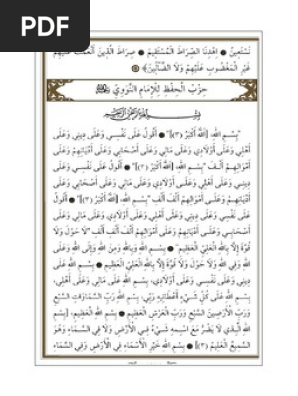 PDF
نَسْتَعِينُ ۞ اِهْدِنَا الصِّرَاطَ الْمُسْتَقِيمَ ۞ صِرَاطَ الَّذِينَ أَنْعَمْتَ عَلَيْهِمْ
غَيْرِ الْمَغْضُوبِ عَلَيْهِمْ وَلَا الضَّالِّينَ﴾ ۞
حِزْبُ الْحِفْظِ لِلْإِمَامِ النَّوَوِيِّ
بِسْمِ اللهِ الرَّحْمٰنِ الرَّحِيمِ
"بِسْمِ اللهِ، [اَللهُ أَكْبَرُ (٣)]" ۞ أَقُولُ عَلَى نَفْسِي وَعَلَى دِينِي وَعَلَى
أَهْلِي وَعَلَى أَوْلَادِي وَعَلَى مَالِي وَعَلَى أَصْحَابِي وَعَلَى أَدْيَانِهِمْ وَعَلَى
أَمْوَالِهِمْ أَلْفَ "بِسْمِ اللهِ، [اَللهُ أَكْبَرُ (٣)]" ۞ أَقُولُ عَلَى نَفْسِي وَعَلَى
دِينِي وَعَلَى أَهْلِي وَعَلَى أَوْلَادِي وَعَلَى مَالِي وَعَلَى أَصْحَابِي وَعَلَى
أَدْيَانِهِمْ وَعَلَى أَمْوَالِهِمْ أَلْفَ أَلْفِ "بِسْمِ اللهِ، [اَللهُ أَكْبَرُ (٣)]" ۞ أَقُولُ
عَلَى نَفْسِي وَعَلَى دِينِي وَعَلَى أَهْلِي وَعَلَى أَوْلَادِي وَعَلَى مَالِي وَعَلَى
أَصْحَابِي وَعَلَى أَدْيَانِهِمْ وَعَلَى أَمْوَالِهِمْ أَلْفَ أَلْفِ أَلْفِ "لَا حَوْلَ وَلَا
قُوَّةَ إِلَّا بِاللهِ الْعَلِيِّ الْعَظِيمِ" ۞ بِسْمِ اللهِ وَبِاللهِ وَمِنَ اللهِ وَإِلَى اللهِ وَعَلَى
اللهِ وَفِي اللهِ وَلَا حَوْلَ وَلَا قُوَّةَ إِلَّا بِاللهِ الْعَلِيِّ الْعَظِيمِ ۞ بِسْمِ اللهِ عَلَى
دِينِي وَعَلَى نَفْسِي وَعَلَى أَوْلَادِي، بِسْمِ اللهِ عَلَى مَالِي وَعَلَى أَهْلِي،
بِسْمِ اللهِ عَلَى كُلِّ شَيْءٍ أَعْطَانِيهِ رَبِّي، بِسْمِ اللهِ رَبِّ السَّمَاوَاتِ السَّبْعِ
وَرَبِّ الْأَرَضِينَ السَّبْعِ وَرَبِّ الْعَرْشِ الْعَظِيمِ ۞ بِسْمِ اللهِ الْعَظِيمِ، [بِسْمِ
اللهِ الَّذِي لَا يَضُرُّ مَعَ اسْمِهِ شَيْءٌ فِي الْأَرْضِ وَلَا فِي السَّمَاءِ وَهُوَ
السَّمِيعُ الْعَلِيمُ (٣)] ۞ بِسْمِ اللهِ خَيْرِ الْأَسْمَاءِ فِي الْأَرْضِ وَفِي السَّمَاءِ